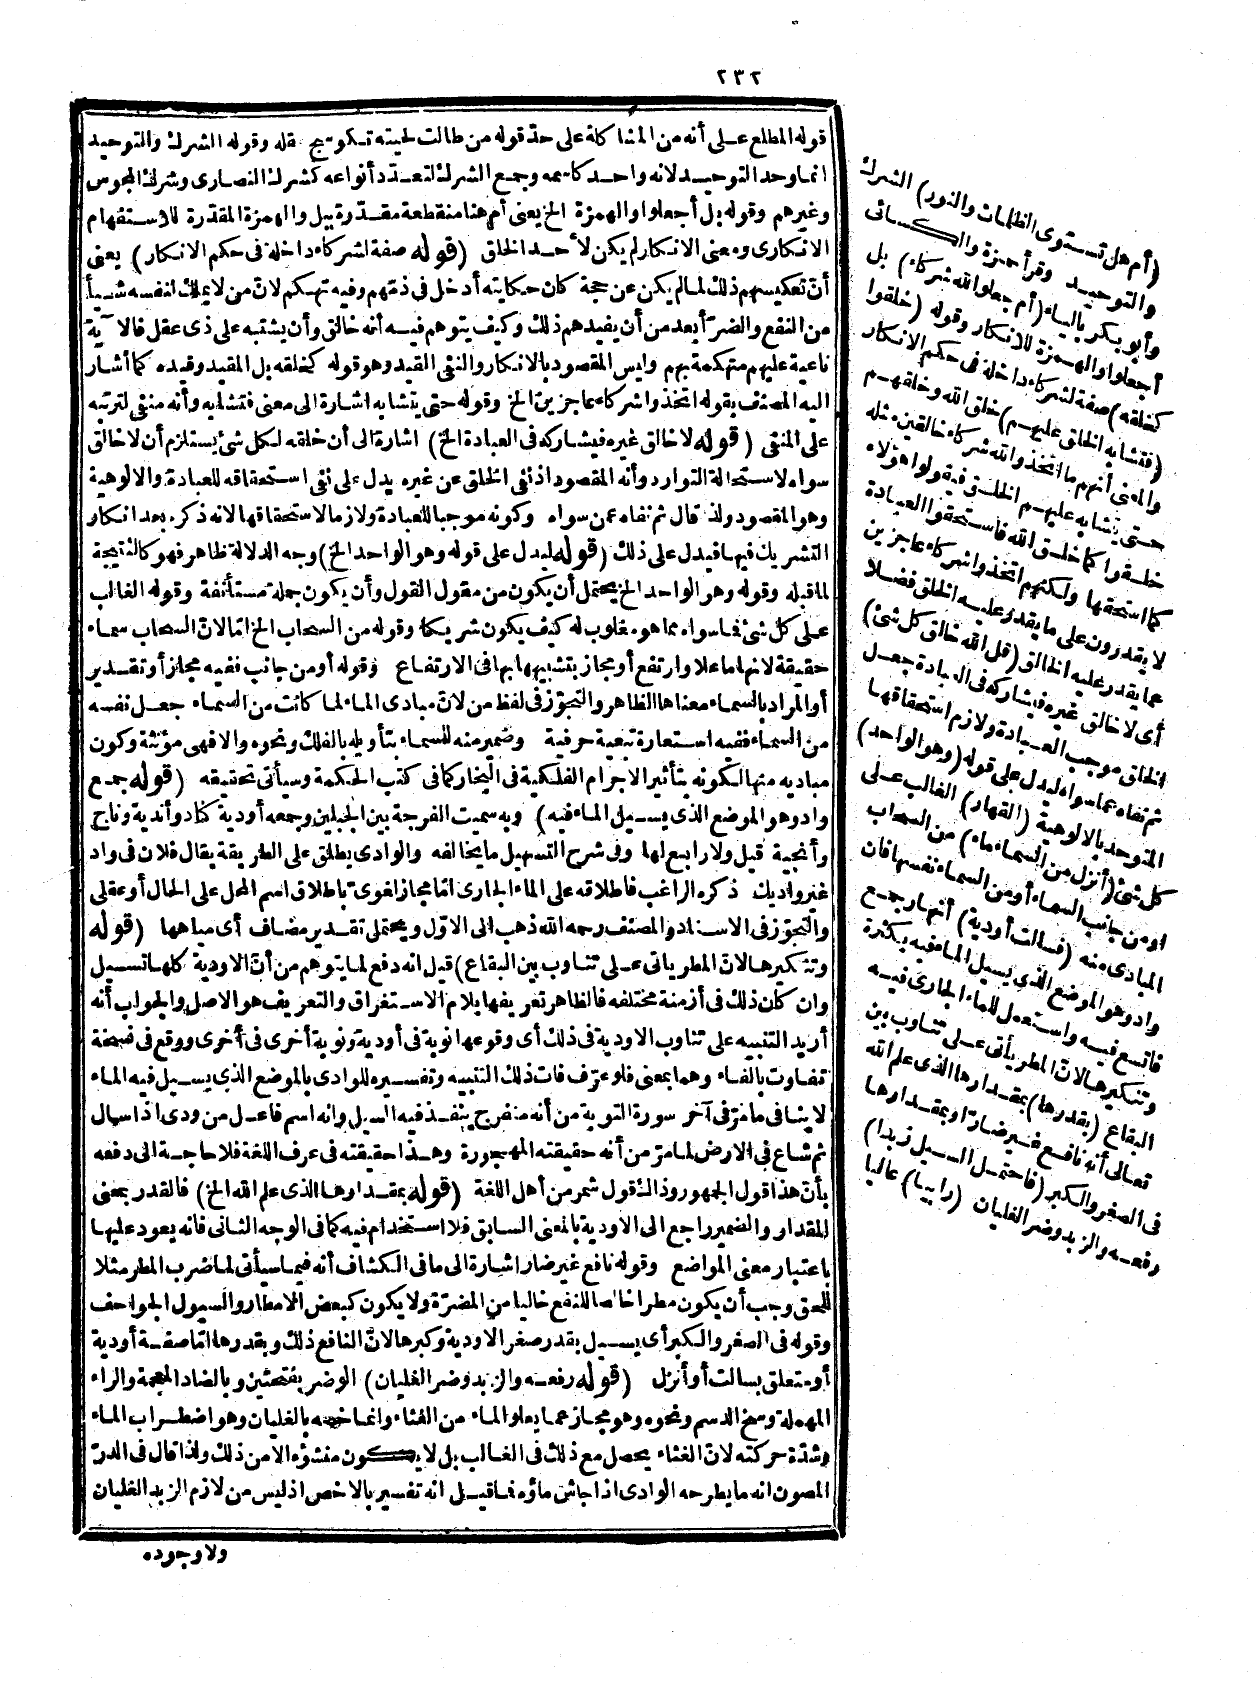 ٢٣٢
قوله المطلع على أنه من المشاكلة على حدّ قوله من طالت لحيته تكوسج عقله وقوله الشرك والتوحيد
انما وحد التوحيد لانه واحد كاسمه وجمع الشرك لتعدّد أنواعه كشرك النصارى وشرك المجوس
وغيرهم وقوله بل أجعلوا والهمزة الخ يعنى أم هنا منقطعة مقدّرة ببل والهمزة المقدرة للاستفهام
الانكارى ومعنى الانكار لم يكن لأحد الخلق (قوله صفة لشركاء داخلة فى حكم الانكار) يعنى
أنّ تعكيسهم ذلك لما لم يكن عن حجة كان حكايته أدخل فى ذمّهم وفيه تهكم لانّ من لا يملك لنفسه شيأ
من النفع والضرّ أبعد من أن يفيدهم ذلك وكيف يتوهم فيه أنه خالق وأن يشتبه على ذى عقل فالآية
ناعية عليهم متهكمة بهم وليس المقصود بالانكار والنفى القيد وهو قوله كخلقه بل المقيد وقيده كما أشار
اليه المصنف بقوله اتخذوا شركاء عاجزين الخ وقوله حتى يتشابه اشارة الى معنى فتشابه وأنه منفى لترتبه
على المنفى (قوله لا خالق غيره فيشاركه فى العبادة الخ) اشارة الى أن خلقه لكل شئ يستلزم أن لا خالق
سواه لاستحالة التوارد وأنه المقصود اذ نفى الخلق عن غيره يدل على نفى استحقاقه للعبادة والالوهية
وهو المقصود ولذ قال ثم نفاه عمن سواه وكونه موجبا للعبادة ولازما لاستحقاقها لانه ذكره بعد انكار
التشريك فيها فيدل على ذلك (قوله ليدل على قوله وهو الواحد الخ) وجه الدلالة ظاهر فهو كالنتيجة
لما قبله وقوله وهو الواحد الخ يحتمل أن يكون من مقول القول وأن يكون جملة مستأنفة وقوله الغالب
على كل شئ فما سواه مما هو مغلوب له كيف يكون شريكا وقوله من السحاب الخ امّا لانّ السحاب سماء
حقيقة لانها ما علا وارتفع أو مجاز بتشبيهها بها فى الارتفاع وقوله أو من جانب ففيه مجاز أو تقدير
أو المراد بالسماء معناها الظاهر والتجوّز فى لفظ من لانّ مبادى الماء لما كانت من السماء جعل نفسه
من السماء ففيه استعارة تبعية حرفية وضمير منه للسماء بتأويله بالفلك ونحوه والا فهى مؤنثة وكون
مباديه منها لكونه بتأثير الاجرام الفلكية فى البخار كما فى كتب الحكمة وسيأتى تحقيقه (قوله جمع
واد وهو الموضع الذى يسيل الماء فيه) وبه سميت الفرجة بين الجبلين وجمعه أودية كناد وأندية وناج
وأنجية قيل ولا رابع لها وفى شرح التسهيل ما يخالفه والوادى يطلق على الطريقة يقال فلان فى واد
غير واديك ذكره الراغب فاطلاقه على الماء الجارى امّا مجاز لغوى باطلاق اسم المحل على الحال أو عقلى
والتجوّز فى الاسناد والمصنف رحمه الله ذهب الى الاوّل ويحتمل تقدير مضاف أى مياهها (قوله
وتنكيرها لانّ المطر يأتى على تناوب بين البقاع) قيل انه دفع لما يتوهم من أنّ الاودية كلها تسيل
وان كان ذلك فى أزمنة مختلفه فالظاهر تعريفها بلام الاستغراق والتعريف هو الاصل والجواب أنه
أريد التنبيه على تناوب الاودية فى ذلك أى وقوعها نوبة فى أودية ونوبة أخرى فى أخرى ووقع فى نسخة
تفاوت بالفاء وهما بمعنى فلو عرّف فات ذلك التنبيه وتفسيره للوادى بالموضع الذى يسيل فيه الماء
لا ينافى ما مرّ فى آخر سورة التوبة من أنه منفرج ينفذ فيه السيل وانه اسم فاعل من ودى اذا سال
ثم شاع فى الارض لما مرّ من أنه حقيقته المهجورة وهذا حقيقته فى عرف اللغة فلا حاجة الى دفعه
بأنّ هذا قول الجمهور وذاك قول شمر من أهل اللغة (قوله بمقدارها الذى علم الله الخ) فالقدر بمعنى
المقدار والضمير راجع الى الاودية بالمعنى السابق فلا استخدام فيه كما فى الوجه الثانى فانه يعود عليها
باعتبار معنى المواضع وقوله نافع غير ضار اشارة الى ما فى الكشاف أنه فيما سيأتى لما ضرب المطر مثلا
للحق وجب أن يكون مطرا خالصا للنفع خاليا من المضرّة ولا يكون كبعض الامطار والسيول الجواحف
وقوله فى الصغر والكبر أى يسيل بقدر صغر الاودية وكبرها لانّ النافع ذلك وبقدرها امّا صفة أودية
أو متعلق بسالت أو أنزل (قوله رفعه والزبد وضر الغليان) الوضر بفتحتين وبالضاد المعجمة والراء
المهملة وسخ الدسم ونحوه وهو مجاز عما يعلو الماء من الغثاء وانما خصه بالغليان وهو اضطراب الماء
وشدّة حركته لانّ الغثاء يحصل مع ذلك فى الغالب بل لا يكون منشؤه الا من ذلك ولذا قال فى الدرّ
المصون انه ما يطرحه الوادى اذا جاش ماؤه فما قيل انه تفسير بالاخص اذ ليس من لازم الزبد الغليان
ولا وجوده
(أم هل تستوى الظلمات والنور) الشرك
والتوحيد وقرأ حمزة والكسائى
وأبو بكر بالياء (أم جعلوا لله شركاء) بل
أجعلوا والهمزة للانكار وقوله (خلقوا
كخلقه) صفة لشركاء داخلة فى حكم الانكار
(فتشابه الخلق عليهم) خلق الله وخلقهم
والمعنى أنهم ما اتخذوا لله شركاء خالقين مثله
حتى يتشابه عليهم الخلق فيقولوا هؤلاء
خلقوا كما خلق الله فاستحقوا العبادة
كما استحقها ولكنهم اتخذوا شركاء عاجزين
لا يقدرون على ما يقدر عليه الخلق فضلا
عما يقدر عليه الخالق (قل الله خالق كل شئ)
أى لا خالق غيره فيشاركه فى العبادة جعل
الخلق موجب العبادة ولازم استحقاقها
ثم نفاه عما سواه ليدل على قوله (وهو الواحد)
المتوحد بالالوهية (القهار) الغالب على
كل شئ (أنزل من السماء ماء) من السحاب
أو من جانب السماء أو من السماء نفسها فان
المبادى منه (فسالت أودية) أنهار جمع
واد وهو الموضع الذى يسيل الماء فيه بكثرة
فاتسع فيه واستعمل للماء الجارى فيه
وتنكيرها لانّ المطر يأتى على تناوب بين
البقاع (بقدرها) بمقدارها الذى علم الله
تعالى أنه نافع غير ضارّ أو بمقدارها
فى الصغر والكبر (فاحتمل السيل زبدا)
رفعه والزبد وضر الغليان (رابيا) عاليا